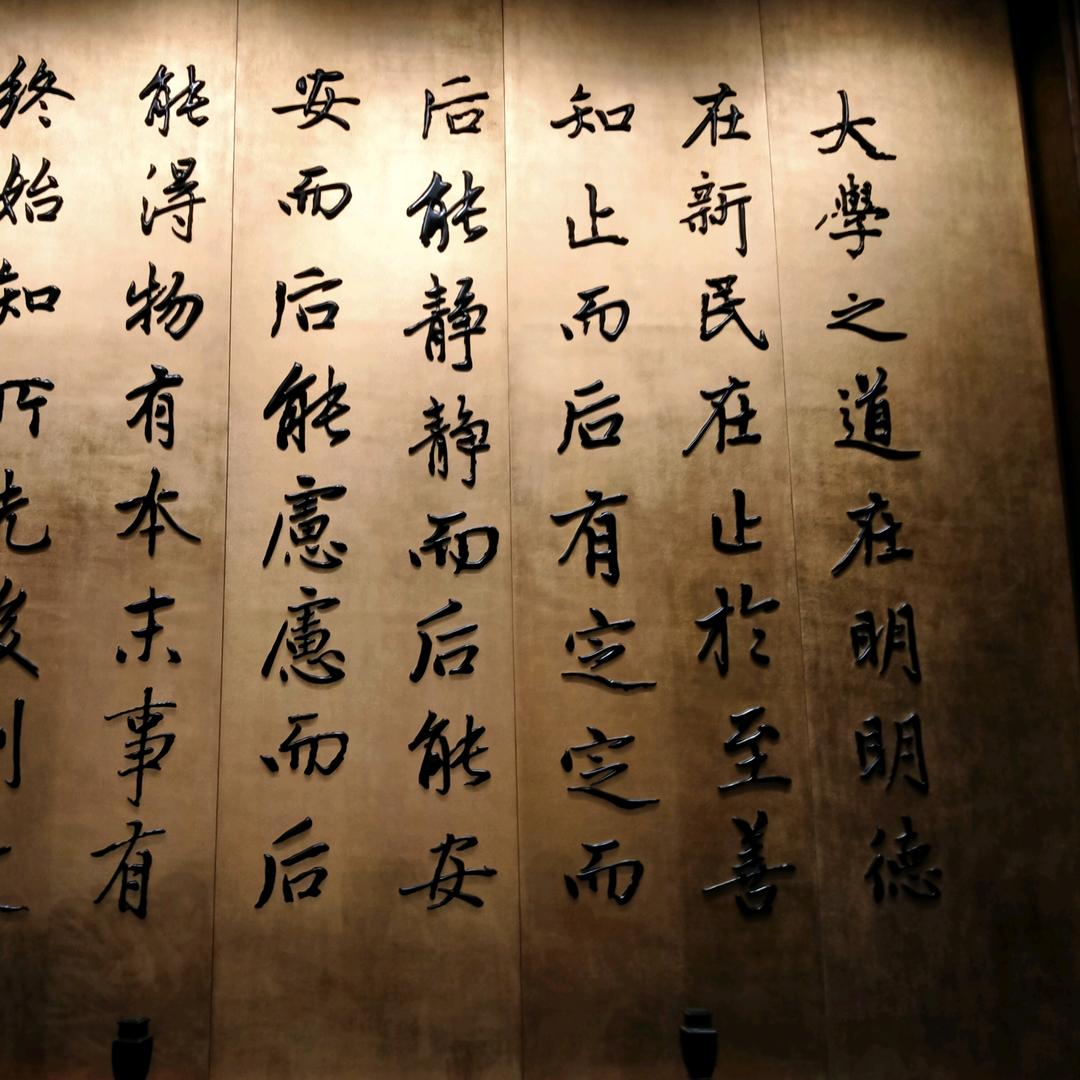 大學之道在明明德
在新民在止於至善
知止而后有定定而
后能靜靜而后能安
安而后能慮慮而后
能得物有本末事有
終始知所先後則